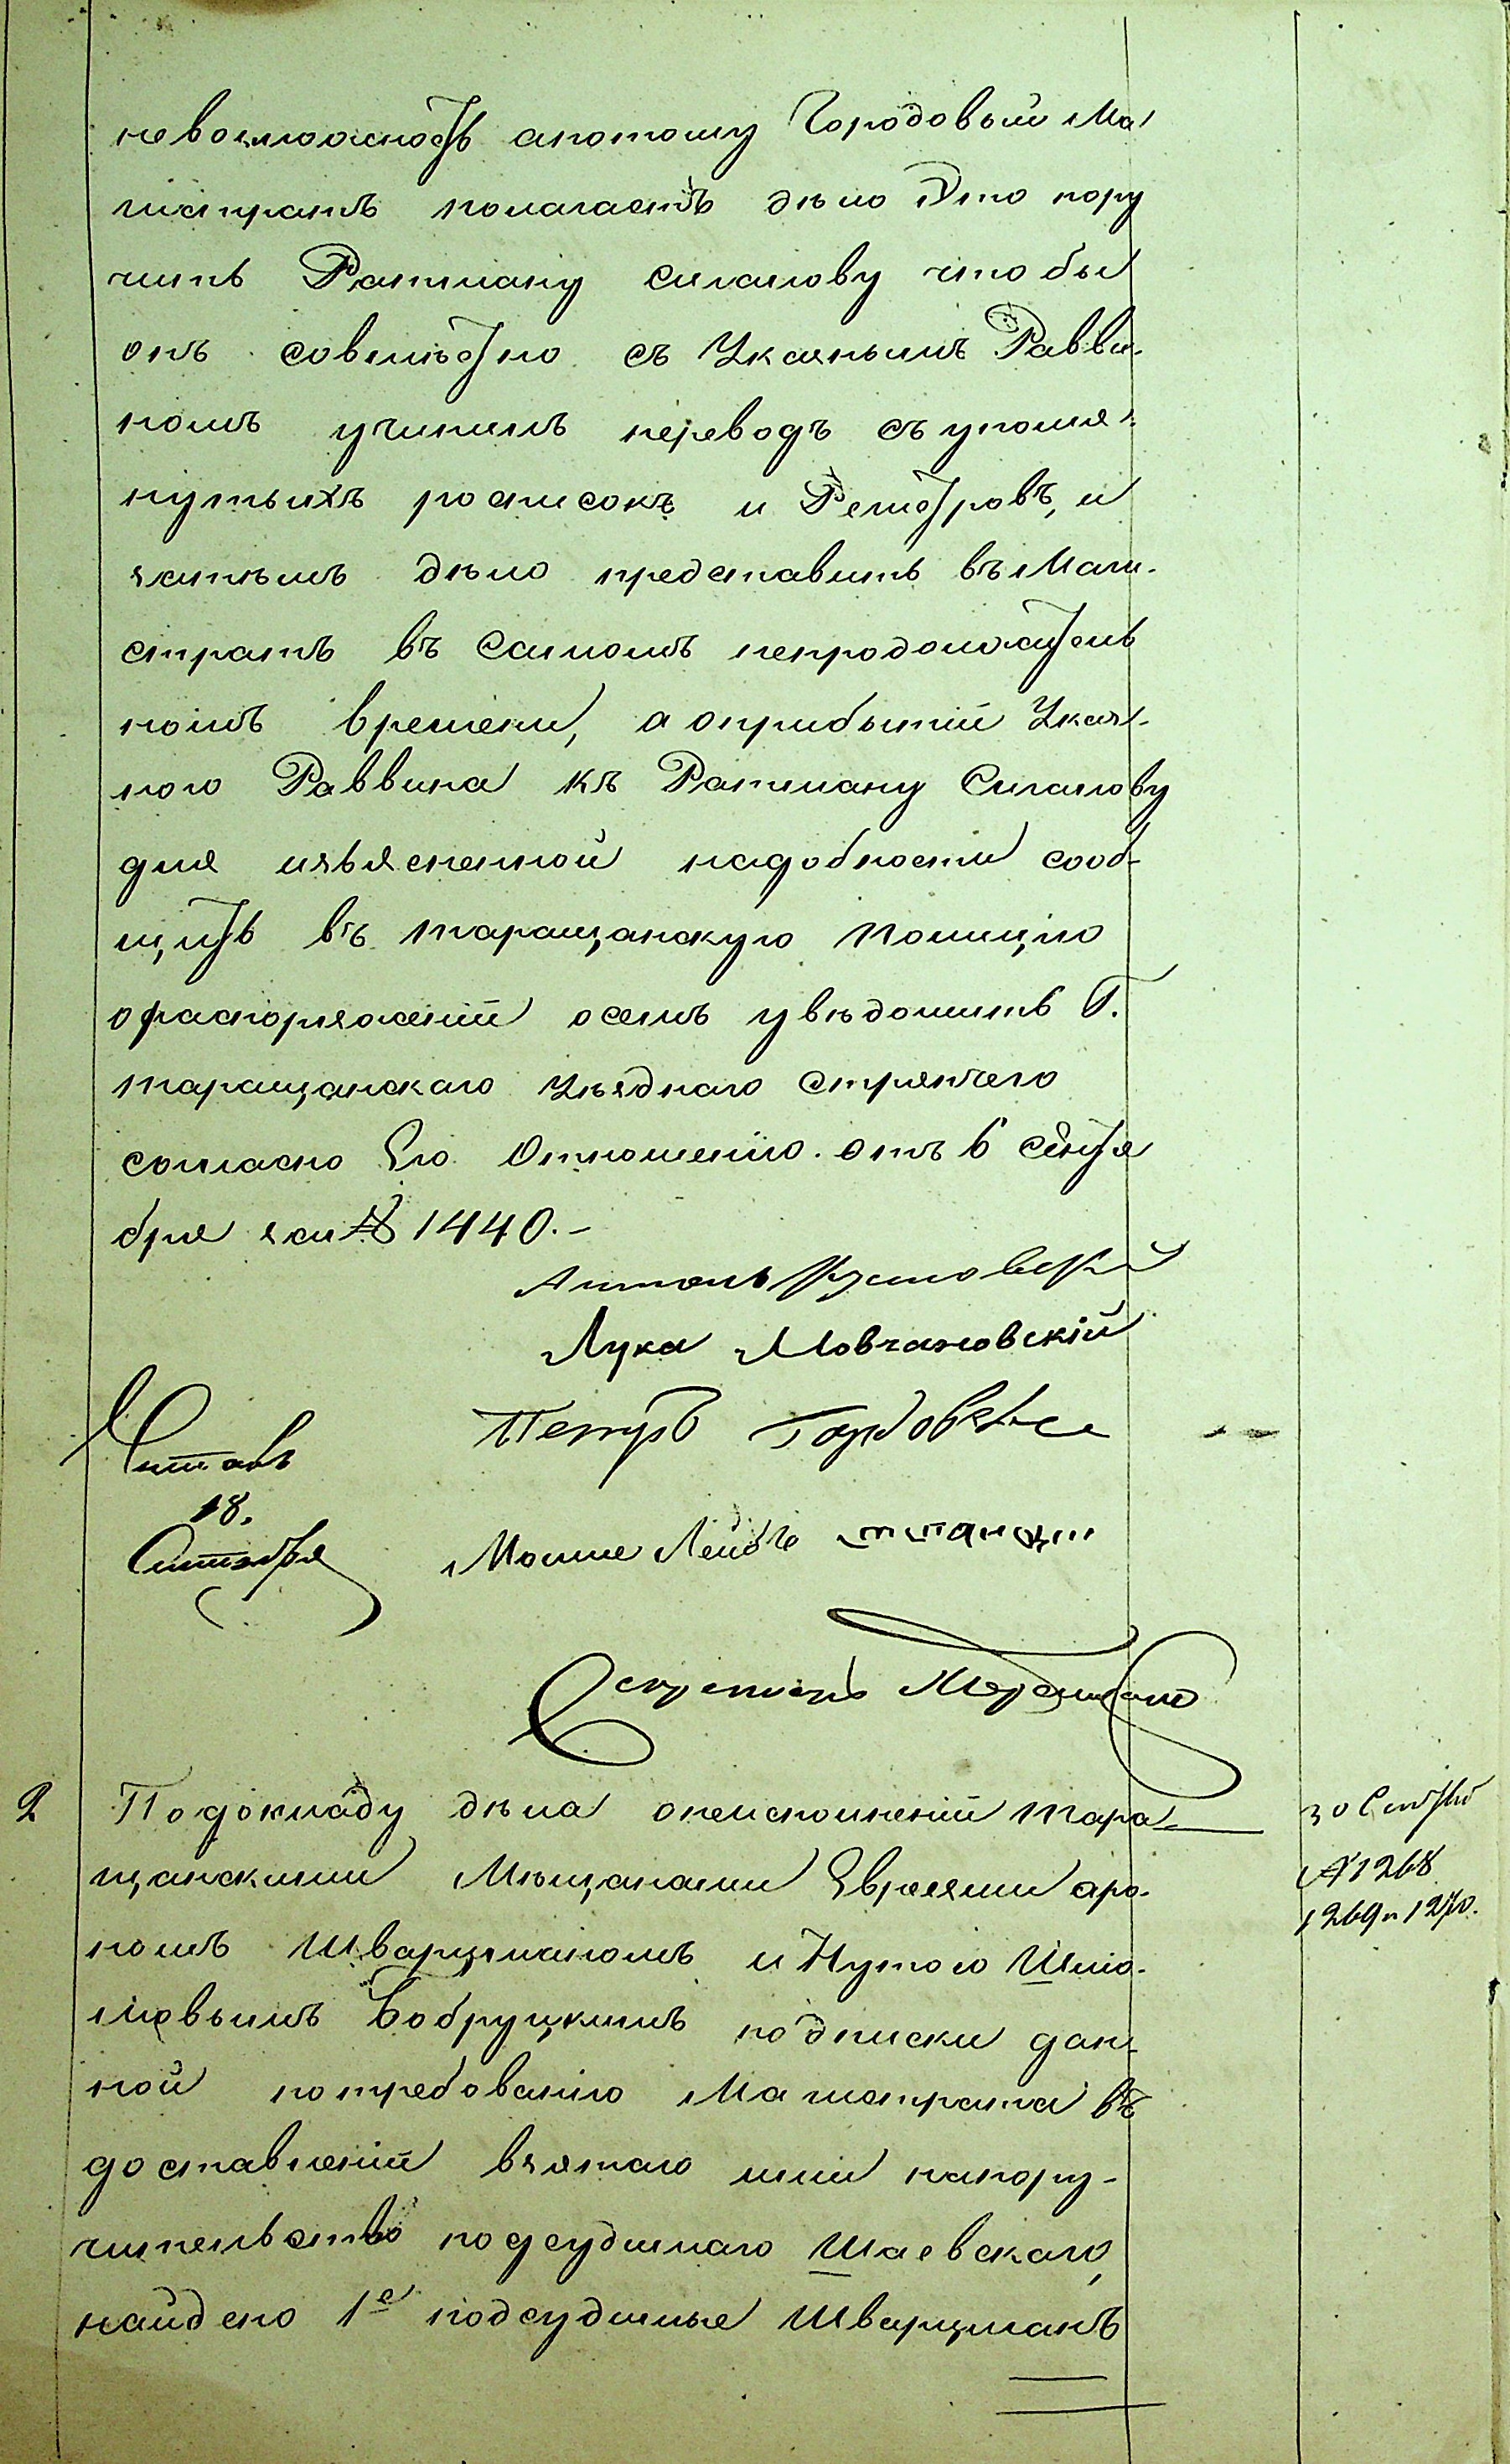 невозможность апотому Городовый Ма
гистратъ полагаетъ дѣло Это пору
чить Ратману Сигалову что бы
онъ совмѣстно съ Указнымъ Равви-
номъ учинилъ переводъ съ упомя-
нутыхъ росписокъ и Реистровъ, и
затѣмъ дѣло представить въ Маги-
стратъ въ Самомъ непродолжитель
номъ времени, а оприбытіи Указ-
ного Раввина къ Ратману Сигалову
для изъясненной надобности сооб-
щить въ таращанскую Полицію
ораспоряженіи осемъ увѣдомить Г.
таращанскаго Уѣзднаго Стряпчего
согласно Его Отношенію. отъ 6 Сентя
бря за № 1440.-
Антонъ
Лука Мовчановскій
Петръ
Читалъ
18.
Сентября
Мошие Лейбъ
Секретарь
2 Подокладу дѣла онеисполненіи тара
30 Сентяб
щанскими Мѣщанами Евреями аро-
№ 1268
номъ Шварцманомъ и Нутою Шмо-
1269 и 1270.
ловымъ Бобруцкимъ подписки дан-
ной потребованію Магистрата въ
доставленіи взятаго ими напору-
чительство подсудимаго Шаевскаго,
найдено 1е подсудимые Шварцманъ